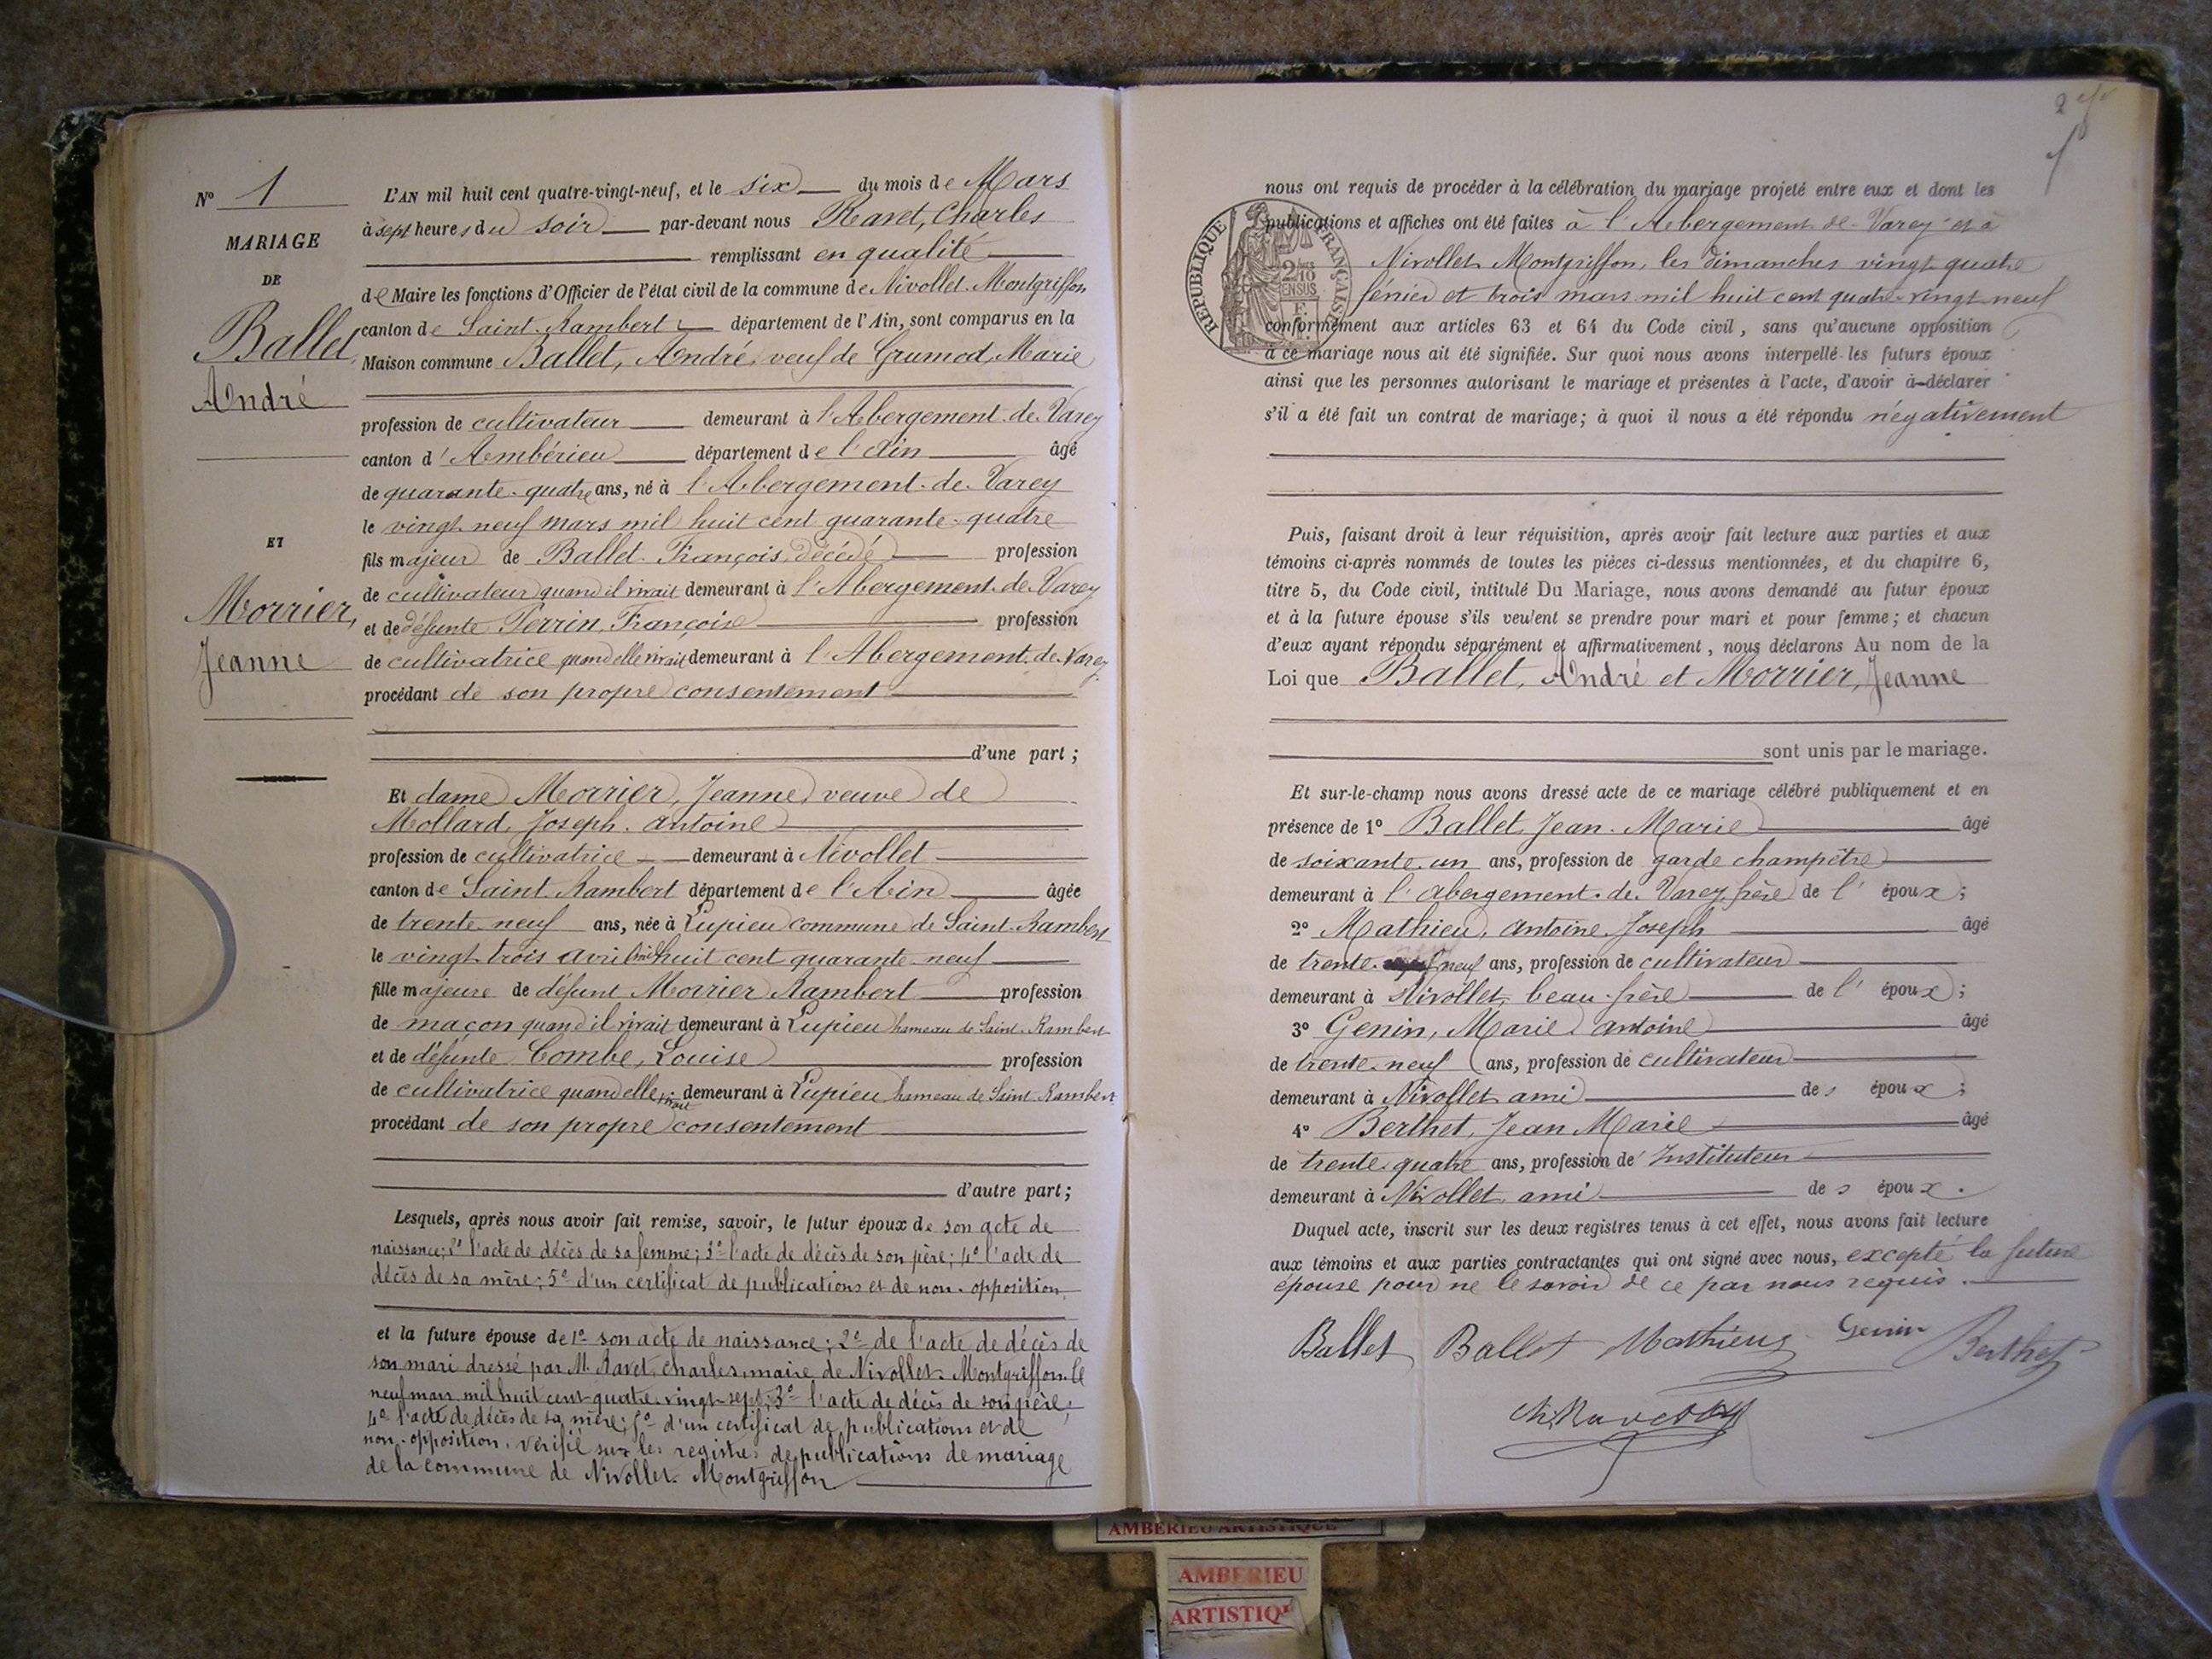 N° 1
MARIAGE
DE
Ballet,
André
ET
Morrier,
Jeanne
L'AN mil huit cent quatre-vingt-neuf, et le six du mois de Mars
à sept heures du soir par-devant nous Ravet, Charles
remplissant en qualité
de Maire les fonctions d'Officier de l'état civil de la commune de Nivollet-Montgriffon
canton de Saint-Rambert département de l'Ain, sont comparus en la
Maison commune Ballet, André, veuf de Grumod, Marie
profession de cultivateur demeurant à l'Abergement-de-Varey
canton d'Ambérieu département de l'Ain âgé
de quarante-quatre ans, né à l'Abergement-de-Varey
le vingt-neuf mars mil huit cent quarante-quatre
fils majeur de Ballet François, décédé profession
de cultivateur quand il vivait demeurant à l'Abergement-de-Varey
et de défunte Perrin, Françoise profession
de cultivatrice quand elle vivait demeurant à l'Abergement-de-Varey
procédant de son propre consentement
d'une part ;
Et dame Morrier, Jeanne, veuve de
Mollard, Joseph-Antoine
profession de cultivatrice demeurant à Nivollet
canton de Saint-Rambert département de l'Ain âgée
de trente-neuf ans, née à Lupieu commune de Saint-Rambert
le vingt-trois avril mil huit cent quarante-neuf
fille majeure de défunt Morrier Rambert profession
de maçon quand il vivait demeurant à Lupieu hameau de Saint-Rambert
et de défunte Combe, Louise profession
de cultivatrice quand elle vivait demeurant à Lupieu hameau de Saint-Rambert
procédant de son propre consentement
d'autre part ;
Lesquels, après nous avoir fait remise, savoir, le futur époux de son acte de
naissance; 2° l'acte de décès de sa femme; 3° l'acte de décès de son père; 4° l'acte de
décès de sa mère; 5° d'un certificat de publications et de non-opposition
et la future épouse de 1° son acte de naissance; 2° de l'acte de décès de
son mari dressé par M. Ravet, Charles, maire de Nivollet-Montgriffon le
neuf mars mil huit cent quatre-vingt-sept; 3° l'acte de décès de son père;
4° l'acte de décès de sa mère; 5° d'un certificat de publications et de
non-opposition, vérifié sur les registres de publications de mariage
de la commune de Nivollet-Montgriffon
RÉPUBLIQUE FRANÇAISE
nous ont requis de procéder à la célébration du mariage projeté entre eux et dont les
publications et affiches ont été faites à l'Abergement-de-Varey et à
Nivollet-Montgriffon, les dimanches vingt-quatre
février et trois mars mil huit cent quatre-vingt-neuf
conformément aux articles 63 et 64 du Code civil, sans qu'aucune opposition
à ce mariage nous ait été signifiée. Sur quoi nous avons interpellé les futurs époux
ainsi que les personnes autorisant le mariage et présentes à l'acte, d'avoir à déclarer
s'il a été fait un contrat de mariage; à quoi il nous a été répondu négativement
Puis, faisant droit à leur réquisition, après avoir fait lecture aux parties et aux
témoins ci-après nommés de toutes les pièces ci-dessus mentionnées, et du chapitre 6,
titre 5, du Code civil, intitulé Du Mariage, nous avons demandé au futur époux
et à la future épouse s'ils veulent se prendre pour mari et pour femme; et chacun
d'eux ayant répondu séparément et affirmativement, nous déclarons Au nom de la
Loi que Ballet, André et Morrier, Jeanne
sont unis par le mariage.
Et sur-le-champ nous avons dressé acte de ce mariage célébré publiquement et en
présence de 1° Ballet Jean-Marie âgé
de soixante-un ans, profession de garde champêtre
demeurant à l'Abergement-de-Varey, frère de l'époux;
2° Mathieu, Antoine Joseph âgé
de trente neuf ans, profession de cultivateur
demeurant à Nivollet, beau-frère de l'époux;
3° Genin, Marie Antoine âgé
de trente-neuf ans, profession de cultivateur
demeurant à Nivollet ami des époux;
4° Berthet, Jean Marie âgé
de trente-quatre ans, profession de Instituteur
demeurant à Nivollet, ami des époux.
Duquel acte, inscrit sur les deux registres tenus à cet effet, nous avons fait lecture
aux témoins et aux parties contractantes qui ont signé avec nous, excepté la future
épouse pour ne le savoir de ce par nous requis.
Ballet Ballet Mathieu Genin Berthet
Ch. Ravet
AMBERIEU ARTISTIQUE
AMBERIEU
ARTISTIQU